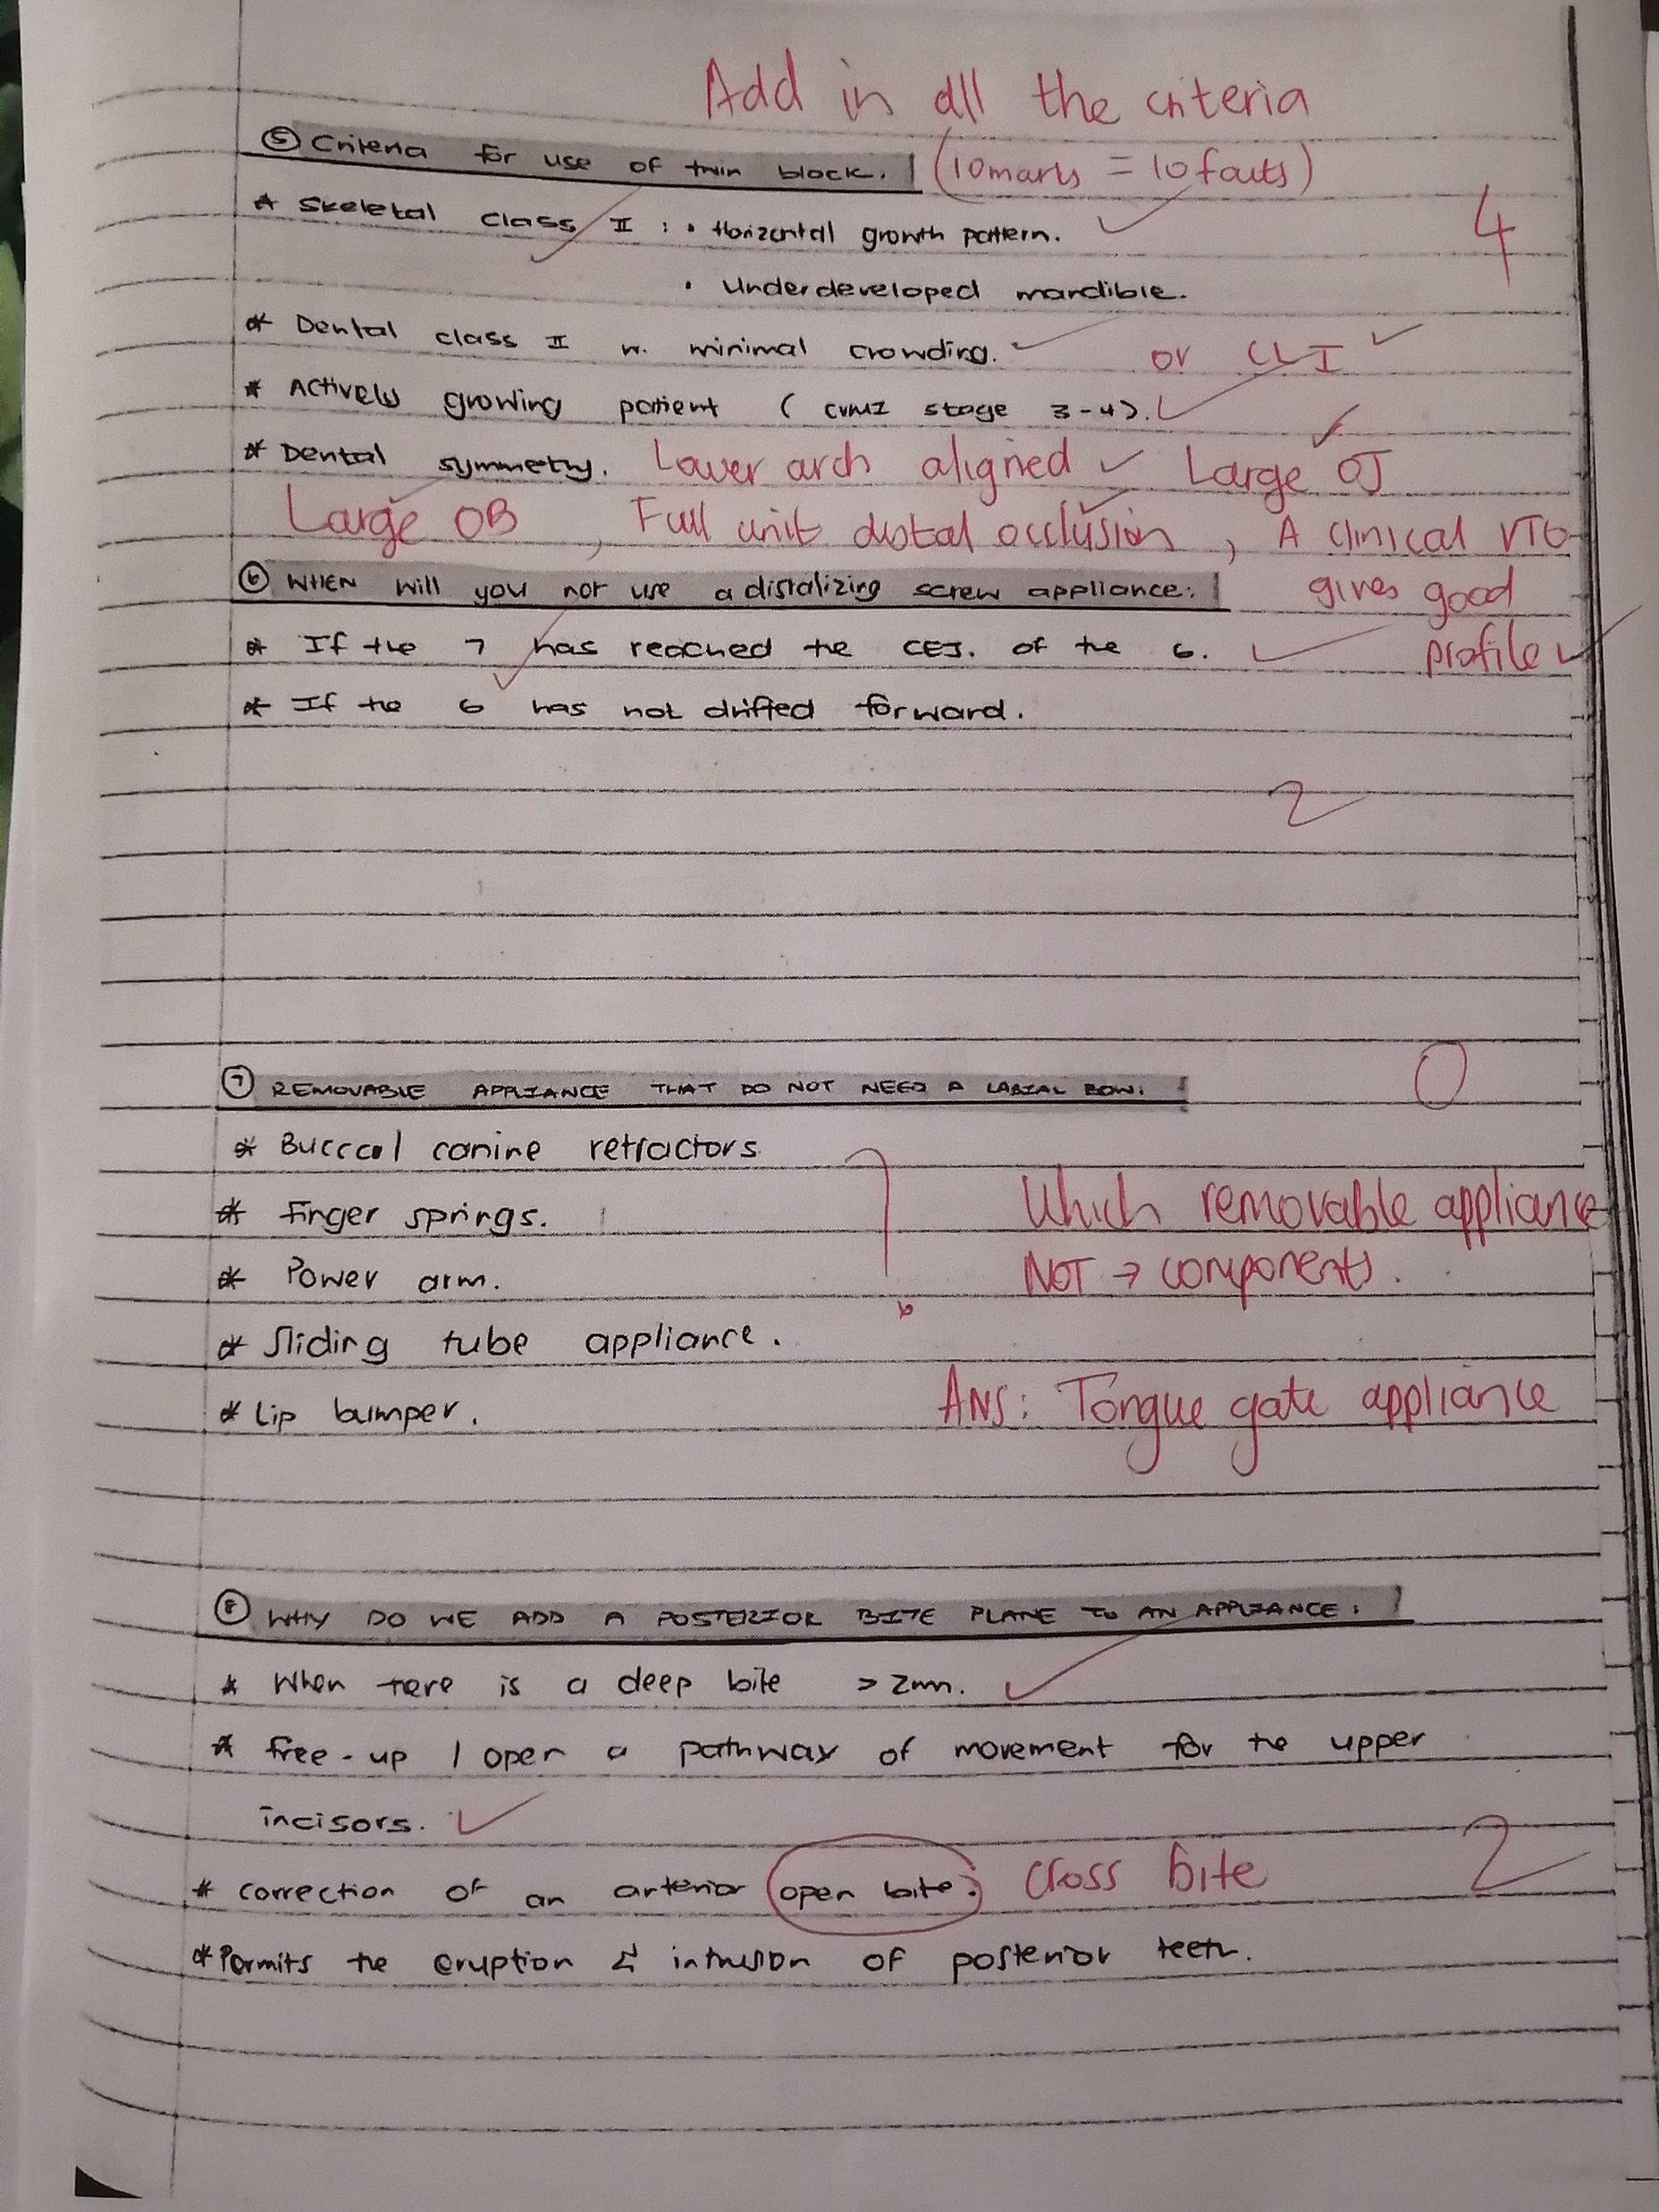 Add in all the criteria
⑤ Criteria for use of twin block. (10 marks = 10 facts)
* Skeletal class II : • Horizontal growth pattern. ✓
4
• Underdeveloped mandible.
* Dental class II w. minimal crowding. ✓ or CL I ✓
* Actively growing patient ( CVMI stage 3-4). ✓
* Dental symmetry. Lower arch aligned ✓ Large OJ ✓
Large OB , Full unit distal occlusion , A clinical VTO
⑥ WHEN will you not use a distalizing screw appliance: gives good
* If the 7 has reached the CEJ. of the 6. ✓ profile ✓
* If the 6 has not drifted forward.
2
0
⑦ REMOVABLE APPLIANCE THAT DO NOT NEED A LABIAL BOW:
* Buccal canine retractors
* Finger springs. Which removable appliance
* Power arm. NOT → components.
* Sliding tube appliance.
* Lip bumper. ANS: Tongue gate appliance
⑧ WHY DO WE ADD A POSTERIOR BITE PLANE TO AN APPLIANCE:
* When there is a deep bite > 2mm. ✓
* free-up / open a pathway of movement for the upper
incisors. ✓
* correction of an anterior open bite. cross bite 2
* Permits the eruption & intrusion of posterior teeth.